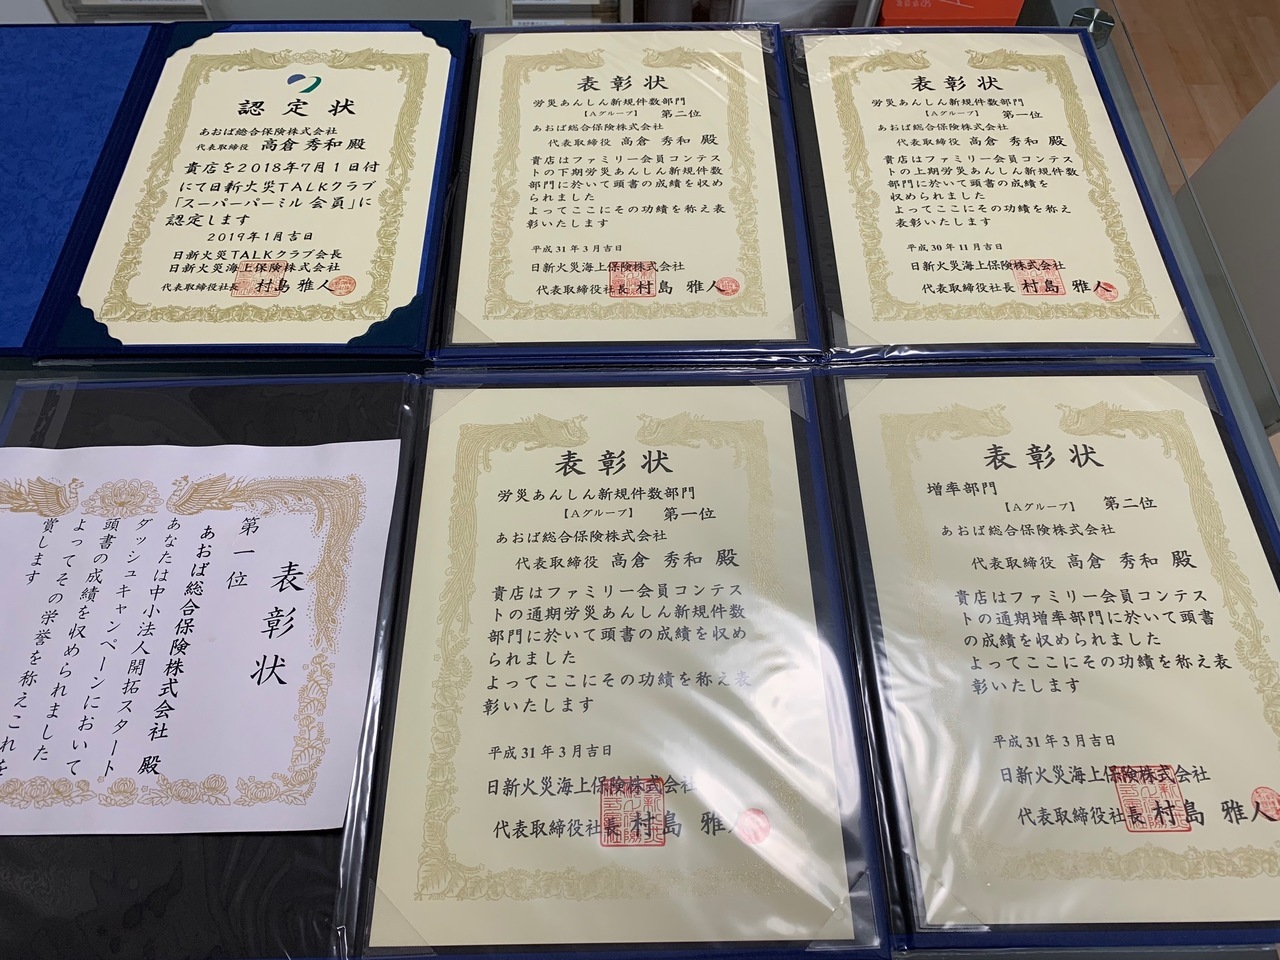 認定状
あおば総合保険株式会社
代表取締役 高倉 秀和 殿
貴店を2018年7月1日付
にて日新火災TALKクラブ
「スーパーパーミル会員」に
認定します
2019年1月吉日
日新火災TALKクラブ会長
日新火災海上保険株式会社
代表取締役社長 村島 雅人
表彰状
労災あんしん新規件数部門
【Aグループ】 第二位
あおば総合保険株式会社
代表取締役 高倉 秀和 殿
貴店はファミリー会員コンテス
トの下期労災あんしん新規件数
部門に於いて頭書の成績を収め
られました
よってここにその功績を称え表
彰いたします
平成31年3月吉日
日新火災海上保険株式会社
代表取締役社長 村島 雅人
表彰状
労災あんしん新規件数部門
【Aグループ】 第一位
あおば総合保険株式会社
代表取締役 高倉 秀和 殿
貴店はファミリー会員コンテス
トの上期労災あんしん新規件数
部門に於いて頭書の成績を
収められました
よってここにその功績を称え
表彰いたします
平成30年11月吉日
日新火災海上保険株式会社
代表取締役社長 村島 雅人
表彰状
第一位
あおば総合保険株式会社 殿
あなたは中小法人開拓スタート
ダッシュキャンペーンにおいて
頭書の成績を収められました
よってその栄誉を称えこれを
賞します
表彰状
労災あんしん新規件数部門
【Aグループ】 第一位
あおば総合保険株式会社
代表取締役 高倉 秀和 殿
貴店はファミリー会員コンテス
トの通期労災あんしん新規件数
部門に於いて頭書の成績を収め
られました
よってここにその功績を称え表
彰いたします
平成31年3月吉日
日新火災海上保険株式会社
代表取締役社長 村島 雅人
表彰状
増率部門
【Aグループ】 第二位
あおば総合保険株式会社
代表取締役 高倉 秀和 殿
貴店はファミリー会員コンテス
トの通期増率部門に於いて頭書
の成績を収められました
よってここにその功績を称え表
彰いたします
平成31年3月吉日
日新火災海上保険株式会社
代表取締役社長 村島 雅人